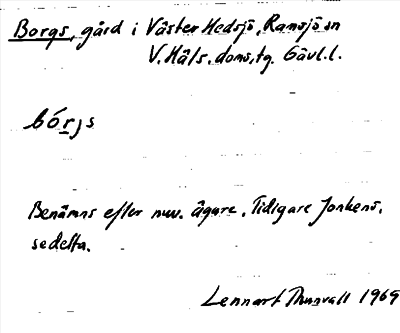 Borgs, gård i Väster Hedsjö, Ramsjö sn
V. Häls. doms.tg. Gävl.l.
bórjs
Benämns efter nuv. ägare. Tidigare Jonkens,
se detta.
Lennart Thunvall 1969